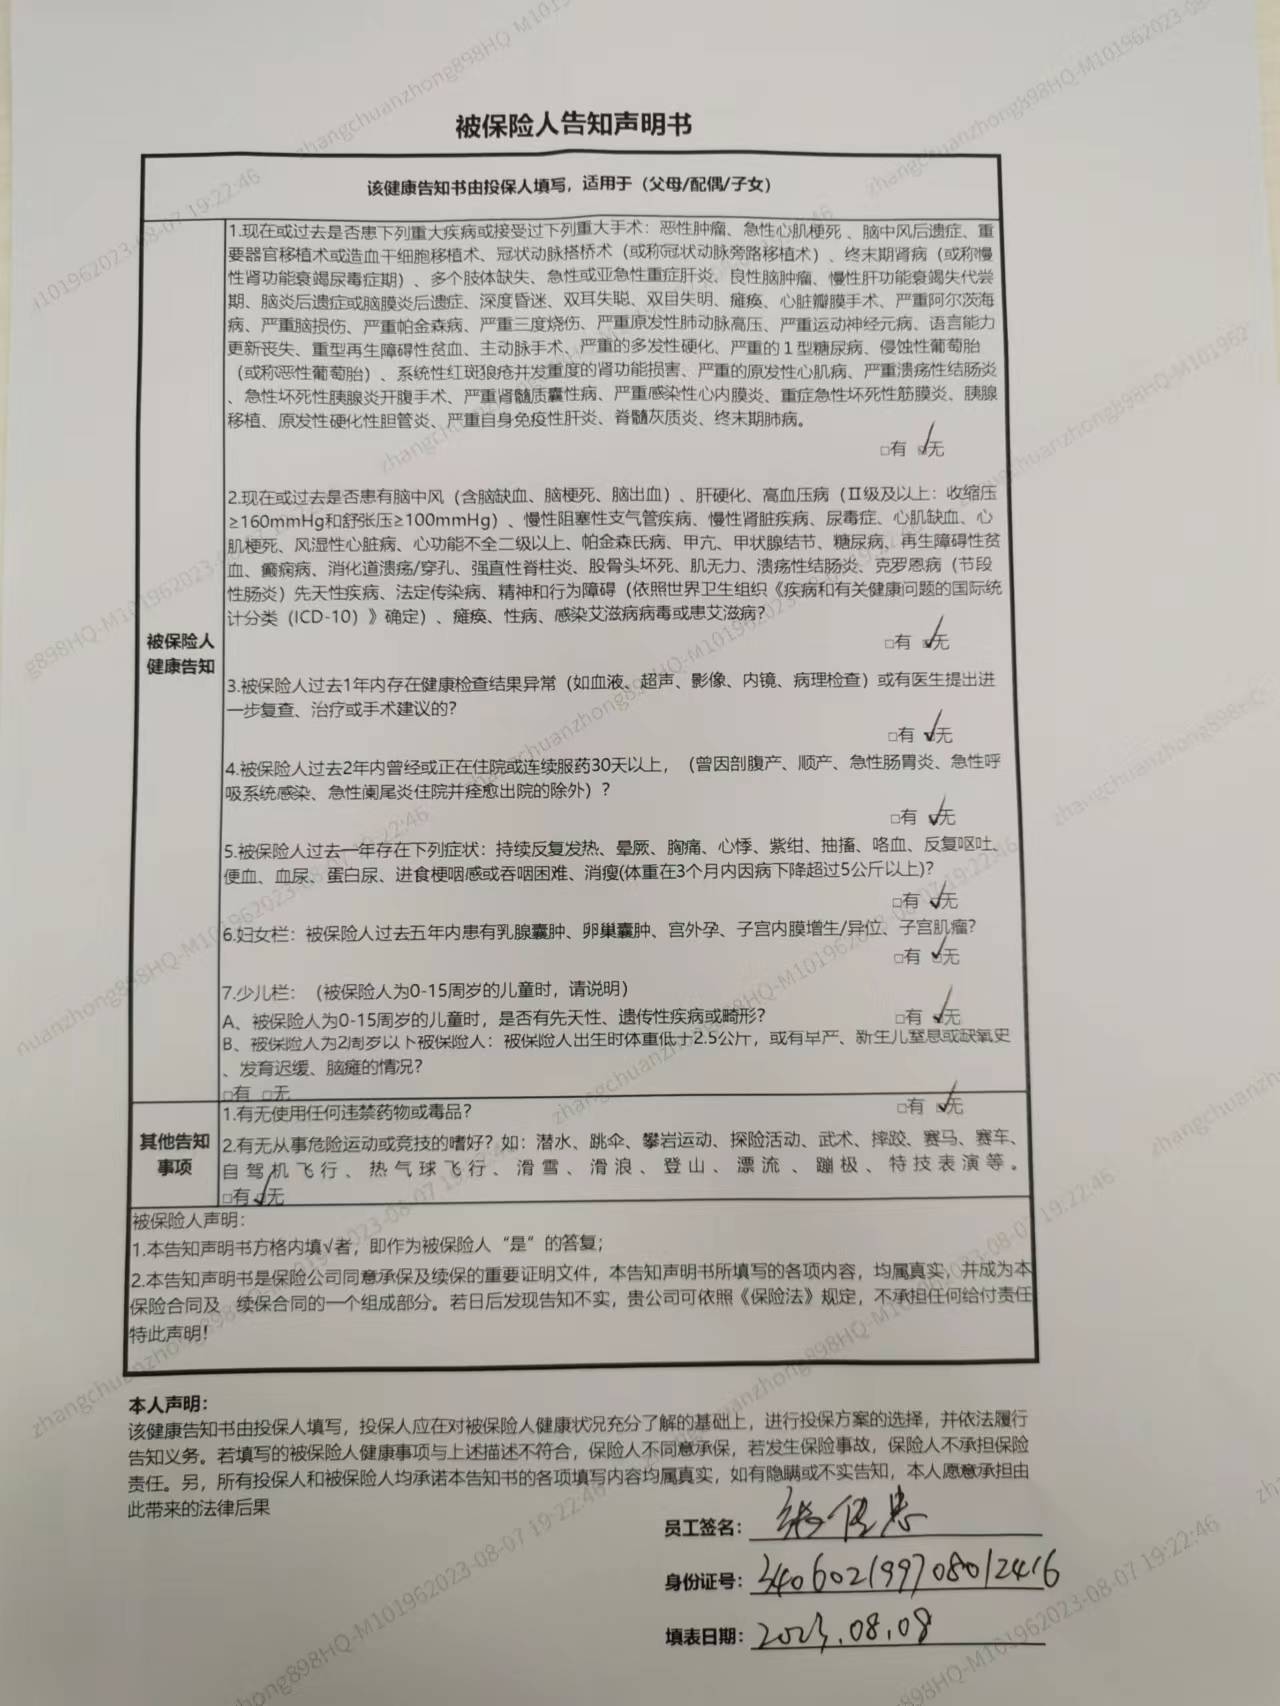 被保险人告知声明书
该健康告知书由投保人填写，适用于（父母/配偶/子女）
被保险人
健康告知
1.现在或过去是否患下列重大疾病或接受过下列重大手术：恶性肿瘤、急性心肌梗死 、脑中风后遗症、重
要器官移植术或造血干细胞移植术、冠状动脉搭桥术（或称冠状动脉旁路移植术）、终末期肾病（或称慢
性肾功能衰竭尿毒症期）、多个肢体缺失、急性或亚急性重症肝炎、良性脑肿瘤、慢性肝功能衰竭失代尝
期、脑炎后遗症或脑膜炎后遗症、深度昏迷、双耳失聪、双目失明、瘫痪、心脏瓣膜手术、严重阿尔茨海
病、严重脑损伤、严重帕金森病、严重三度烧伤、严重原发性肺动脉高压、严重运动神经元病、语言能力
更新丧失、重型再生障碍性贫血、主动脉手术、严重的多发性硬化、严重的１型糖尿病、侵蚀性葡萄胎
（或称恶性葡萄胎）、系统性红斑狼疮并发重度的肾功能损害、严重的原发性心肌病、严重溃疡性结肠炎
、急性坏死性胰腺炎开腹手术、严重肾髓质囊性病、严重感染性心内膜炎、重症急性坏死性筋膜炎、胰腺
移植、原发性硬化性胆管炎、严重自身免疫性肝炎、脊髓灰质炎、终末期肺病。
□有 ☑无
2.现在或过去是否患有脑中风（含脑缺血、脑梗死、脑出血）、肝硬化、高血压病（Ⅱ级及以上：收缩压
≥160mmHg和舒张压≥100mmHg）、慢性阻塞性支气管疾病、慢性肾脏疾病、尿毒症、心肌缺血、心
肌梗死、风湿性心脏病、心功能不全二级以上、帕金森氏病、甲亢、甲状腺结节、糖尿病、再生障碍性贫
血、癫痫病、消化道溃疡/穿孔、强直性脊柱炎、股骨头坏死、肌无力、溃疡性结肠炎、克罗恩病（节段
性肠炎）先天性疾病、法定传染病、精神和行为障碍（依照世界卫生组织《疾病和有关健康问题的国际统
计分类（ICD-10）》确定）、瘫痪、性病、感染艾滋病病毒或患艾滋病？
□有 ☑无
3.被保险人过去1年内存在健康检查结果异常（如血液、超声、影像、内镜、病理检查）或有医生提出进
一步复查、治疗或手术建议的？
□有 ☑无
4.被保险人过去2年内曾经或正在住院或连续服药30天以上，（曾因剖腹产、顺产、急性肠胃炎、急性呼
吸系统感染、急性阑尾炎住院并痊愈出院的除外）？
□有 ☑无
5.被保险人过去一年存在下列症状：持续反复发热、晕厥、胸痛、心悸、紫绀、抽搐、咯血、反复呕吐、
便血、血尿、蛋白尿、进食梗咽感或吞咽困难、消瘦(体重在3个月内因病下降超过5公斤以上)？
□有 ☑无
6.妇女栏：被保险人过去五年内患有乳腺囊肿、卵巢囊肿、宫外孕、子宫内膜增生/异位、子宫肌瘤？
□有 ☑无
7.少儿栏：（被保险人为0-15周岁的儿童时，请说明）
A、被保险人为0-15周岁的儿童时，是否有先天性、遗传性疾病或畸形？ □有 ☑无
B、被保险人为2周岁以下被保险人：被保险人出生时体重低于2.5公斤，或有早产、新生儿窒息或缺氧史
、发育迟缓、脑瘫的情况？
□有 □无
其他告知
事项
1.有无使用任何违禁药物或毒品？ □有 ☑无
2.有无从事危险运动或竞技的嗜好？如：潜水、跳伞、攀岩运动、探险活动、武术、摔跤、赛马、赛车、
自驾机飞行、热气球飞行、滑雪、滑浪、登山、漂流、蹦极、特技表演等。
□有 ☑无
被保险人声明：
1.本告知声明书方格内填√者，即作为被保险人“是”的答复；
2.本告知声明书是保险公司同意承保及续保的重要证明文件，本告知声明书所填写的各项内容，均属真实，并成为本
保险合同及 续保合同的一个组成部分。若日后发现告知不实，贵公司可依照《保险法》规定，不承担任何给付责任
特此声明！
本人声明：
该健康告知书由投保人填写，投保人应在对被保险人健康状况充分了解的基础上，进行投保方案的选择，并依法履行
告知义务。若填写的被保险人健康事项与上述描述不符合，保险人不同意承保，若发生保险事故，保险人不承担保险
责任。另，所有投保人和被保险人均承诺本告知书的各项填写内容均属真实，如有隐瞒或不实告知，本人愿意承担由
此带来的法律后果
员工签名：
身份证号：340602199708012416
填表日期：2023.08.08
zhangchuanzhong898HQ-M101962023-08-07 19:22:46